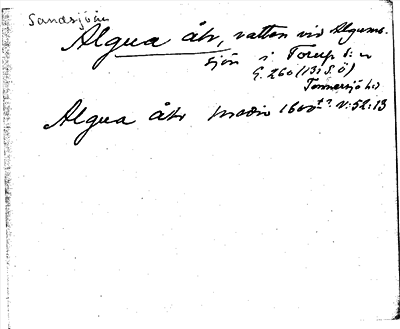 Sandsjöån
Algua åhr, vatten vid Algums-
sjön i Torup s:n
G. 260 (13; S. Ö)
Tönnersjö hd
Algua åhr 1600 V:52:13